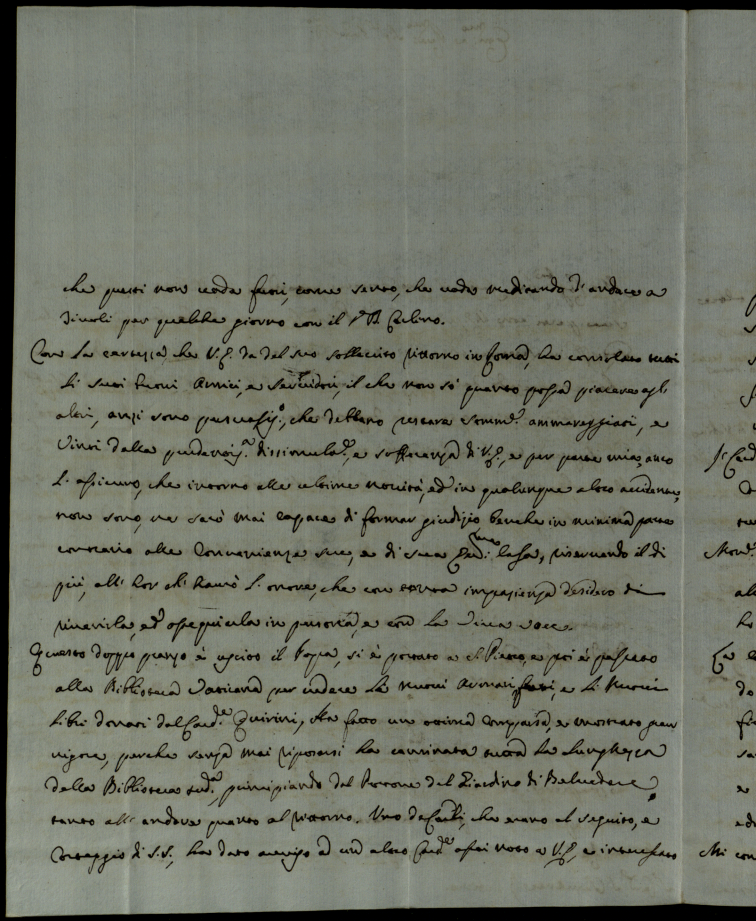 che questi non veda fuori, come sento, che vada meditando d'andare a
Tivoli per qualche giorno con il
Con la certezza che V.E. dà del suo sollecito ritorno in Roma, ha consolato tutti
li suoi buoni Amici, e Servidori, il che non sò quanto possa piacere agl'
altri, anzi sono , che debbano restare somm.e ammareggiati, e
vinti dalla dissimulaz.e, e sofferenza di V.E., e per parte mia, anco
L'assicuro, che intorno alle ultime novità, ed in qualunque altro accidente,
non sono, ne sarò mai capace di formar giudizio benche in minima parte
contrario alla Convenienza sua, e di sua Casa, riservando il di
più, all'hor ch'haurò l'onore, che con impazienza desidero di
riuerirla, ed ossequiarla in persona, e con la viva voce.
Questo doppo pranzo è uscito il Papa, si è portato a S. Pietro, e poi è passato
alla Biblioteca Vaticana per vedere li nuovi Armari fatti, e li nuovi
Libri donati dal Card.e Quirini, ha fatto un ottima comparsa, e mostrato gran
vigore, perche senza mai riposarsi ha caminata tutta la lunghezza
della Biblioteca sud.a, principiando dal Portone del Giardino di Belvedere
tanto all'andare quanto al ritorno. Uno de , che erano al seguito, e
Corteggio di S.S., ha dato auuiso ad un altro Card.e assai noto a V.E., e interessato